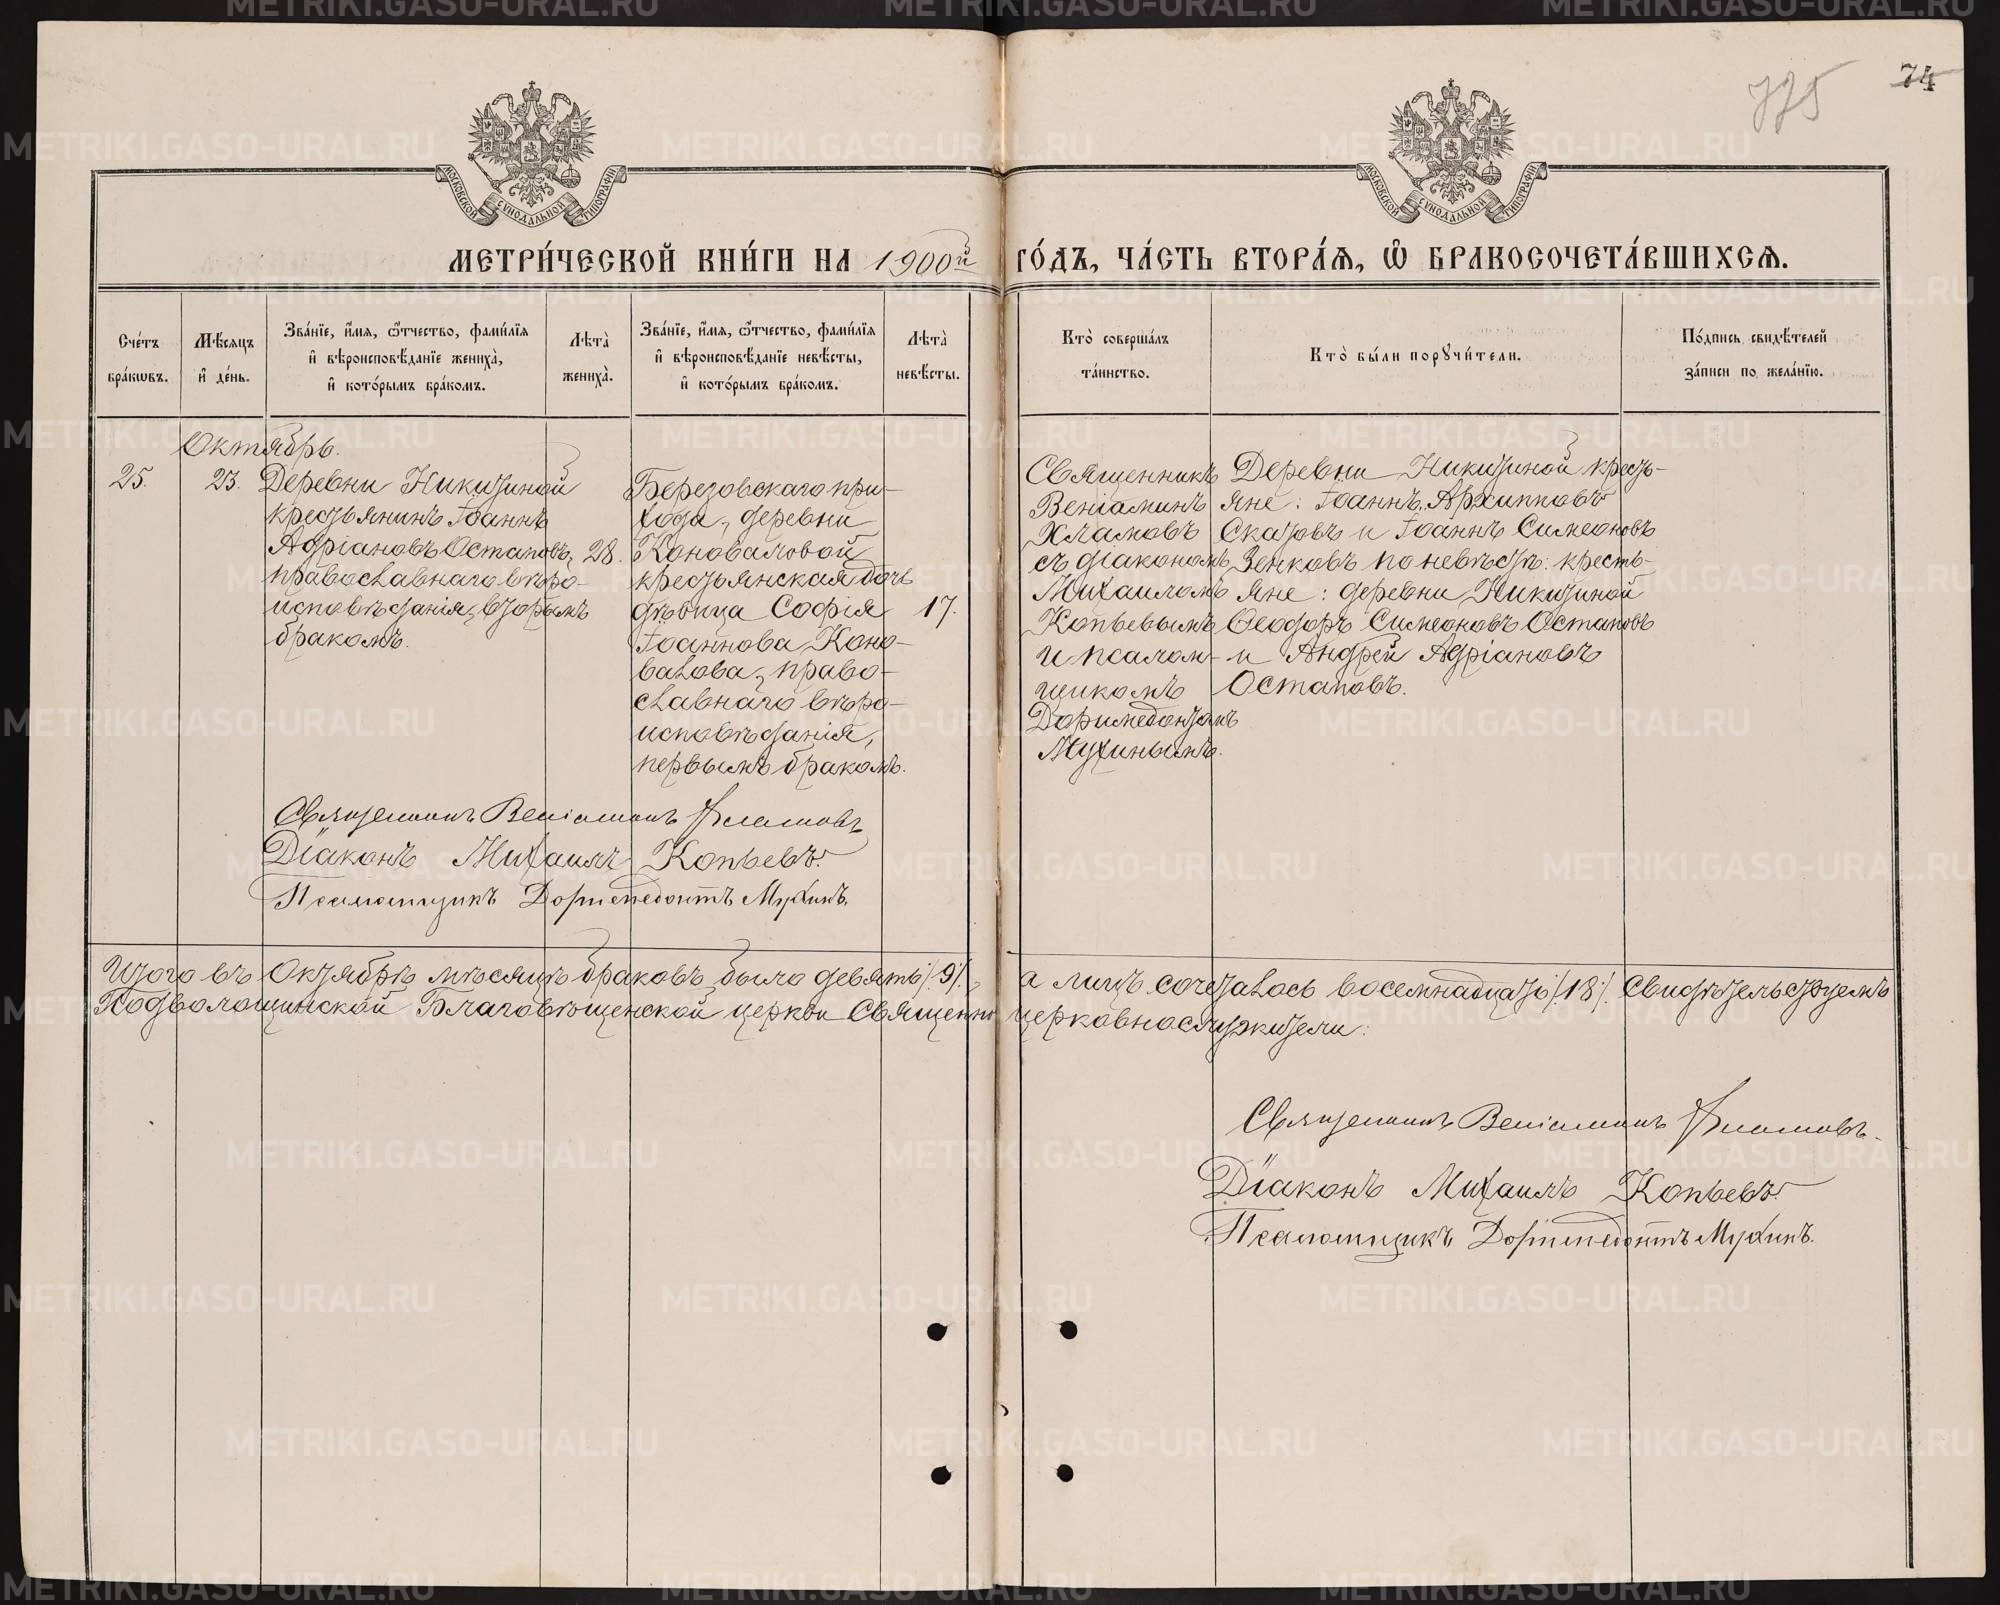 775
74
МОСКОВСКОЙ СѴНОДАЛЬНОЙ ТИПОГРАФІИ
МОСКОВСКОЙ СѴНОДАЛЬНОЙ ТИПОГРАФІИ
МЕТРИ́ЧЕСКОЙ КНИ́ГИ НА 1900й ГО́ДЪ, ЧА́СТЬ ВТОРА́Ѧ, Ѽ БРАКОСОЧЕТА́ВШИХСѦ.
Сче́тъ бра́кѡвъ.
Мѣ́сяцъ и҆ де́нь.
Зва́нїе, и҆́мѧ, ѻ҆́тчество, фами́лїѧ и҆ вѣроисповѣ́данїе жениха̀, и҆ кото́рымъ бра́комъ.
Лѣ́та̀ жениха̀.
Зва́нїе, и҆́мѧ, ѻ҆́тчество, фами́лїѧ и҆ вѣроисповѣ́данїе невѣ́сты, и҆ кото́рымъ бра́комъ.
Лѣ́та̀ невѣ́сты.
Кто̀ соверша́лъ та́инство.
Кто̀ бы́ли порꙋчи́тели.
По́дпись свидѣ́телей за́писи по жела́нїю.
Октябрь.
25.
23.
Деревни Никитиной
крестьянинъ Іоаннъ
Адріановъ Остаповъ,
православнаго вѣро-
исповѣданія, вторымъ
бракомъ.
28.
Березовскаго при-
хода, деревни
Коноваловой
крестьянская дочь
дѣвица Софія
Іоаннова Коно-
валова, право-
славнаго вѣро-
исповѣданія,
первымъ бракомъ.
17.
Священникъ
Веніаминъ
Хламовъ
съ діакономъ
Михаиломъ
Копьевымъ
и псалом-
щикомъ
Доримедонтомъ
Мухинымъ.
Деревни Никитиной кресть-
яне: Іоаннъ Архипповъ
Скатовъ и Іоаннъ Симеоновъ
Зенковъ по невѣстѣ: кресть-
яне: деревни Никитиной
Ѳеодоръ Симеоновъ Остаповъ
и Андрей Адріановъ
Остаповъ.
Священникъ Веніаминъ Хламовъ
Діаконъ Михаилъ Копьевъ.
Псаломщикъ Доримедонтъ Мухинъ.
Итого въ Октябрѣ мѣсяцѣ браковъ было девять /.9/., а лицъ сочеталось восемнадцать /.18/. Свидѣтельствуемъ
Подволошинской Благовѣщенской церкви Священно церковнослужители:
Священникъ Веніаминъ Хламовъ.
Діаконъ Михаилъ Копьевъ.
Псаломщикъ Доримедонтъ Мухинъ.
METRIKI.GASO-URAL.RU